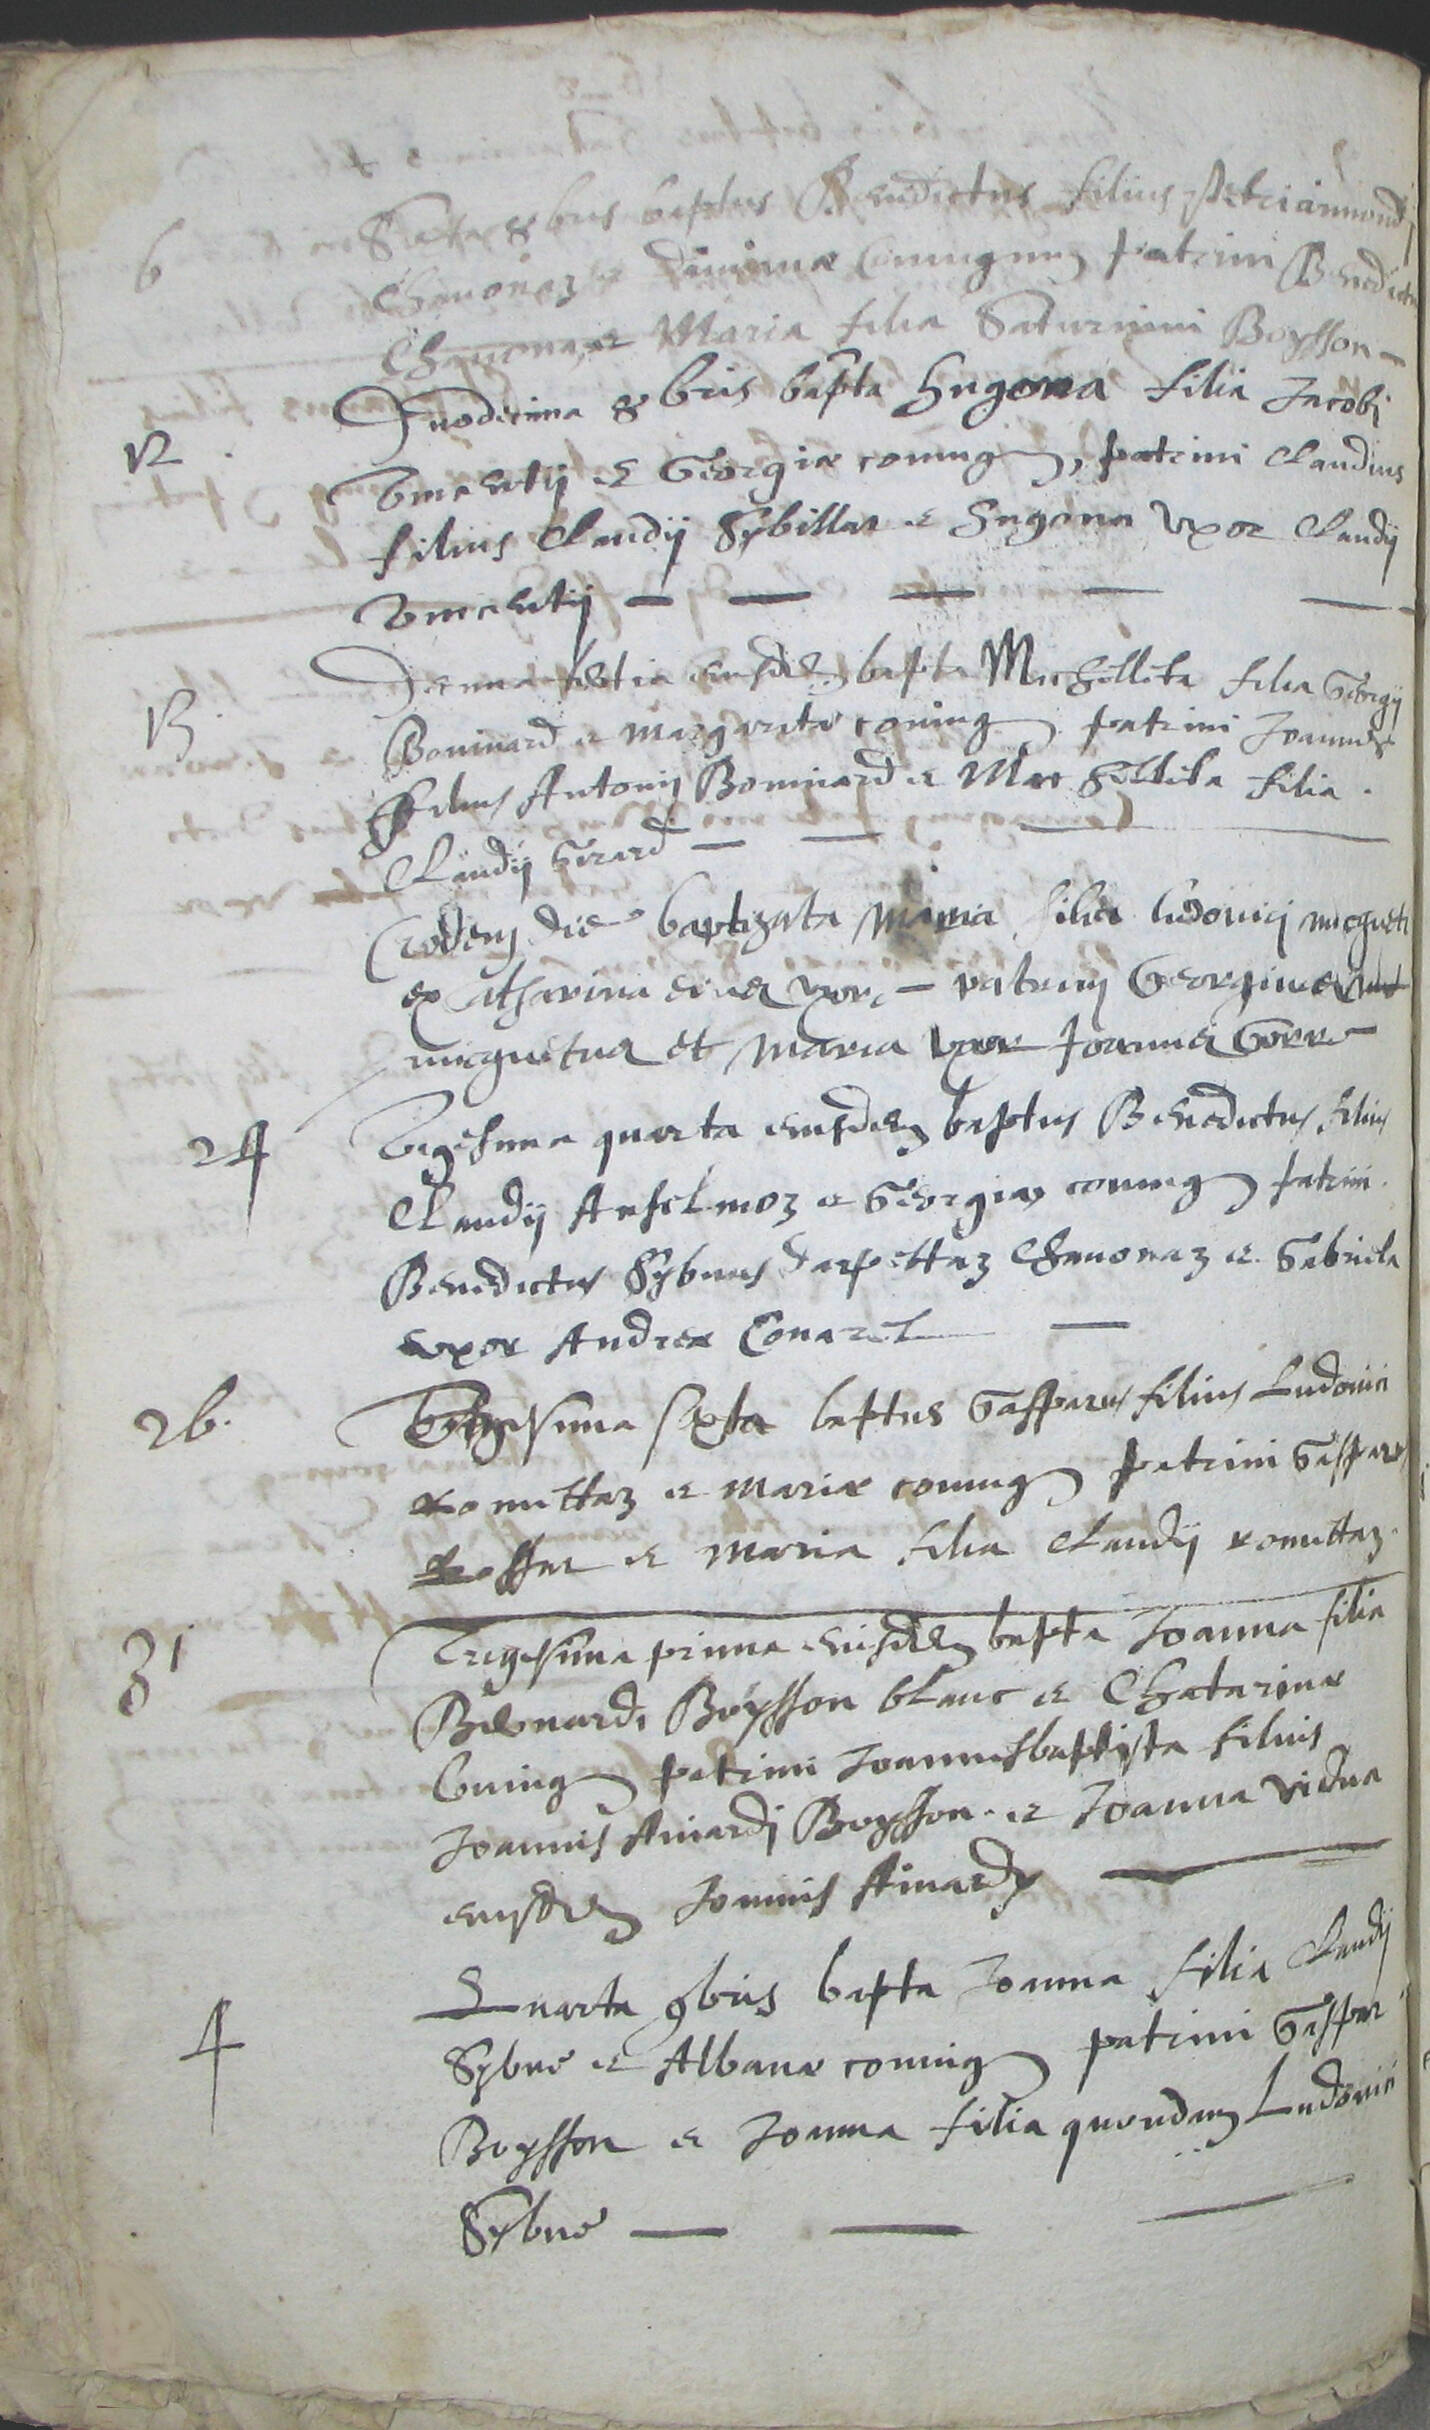 6 Sexta 8bris baptus Benedictus filius Petri aimond
Chanonaz & coniugum patrini Benedictus
Chanonaz & Maria filia Saturnini Boysson
12. Duodecima 8bris bapta Hugona filia Jacobi
Vincentij & Georgiæ coniug, patrini Claudius
filius Claudij Sybillat & Hugona uxor Claudij
Vincentij
13. Decima tertia eiusdem bapta Michelleta filia Georgij
Boninard & margaritæ coniug patrini Joannes
filius Antonij Boninard & Michelleta filia.
Claudij Girard
Eodem die baptizata maria filia ludouici micgueti
ex Catharina eius uxor patrinj Georgius
micguetus et maria uxor Joannis
24 Vigesima quarta eiusdem baptus Benedictus filius
Claudij Anselmoz & Georgiæ coniug patrini.
Benedictus Sybuus darpettaz Chanonaz & Gabriela
uxor Andreæ Conarel
26. Vigesima sexta baptus Gasparus filius Ludouici
Romettaz & mariæ coniug patrini Gasparus
Rosset & Maria filia Claudij romettaz.
31 Trigesima prima eiusdem bapta Joanna filia
Bernardi Boysson blanc & Chatarinæ
Coniug patrini Joannesbaptista filius
Joannis Aimardj Boysson. & Joanna vidua
eiusdem Joannis Aimardj
4 Quarta 9bris bapta Joanna filia Claudij
Sybue & Albanæ coniug patrini Gaspar
Boysson & Joanna filia quondam Ludouici
Sybue